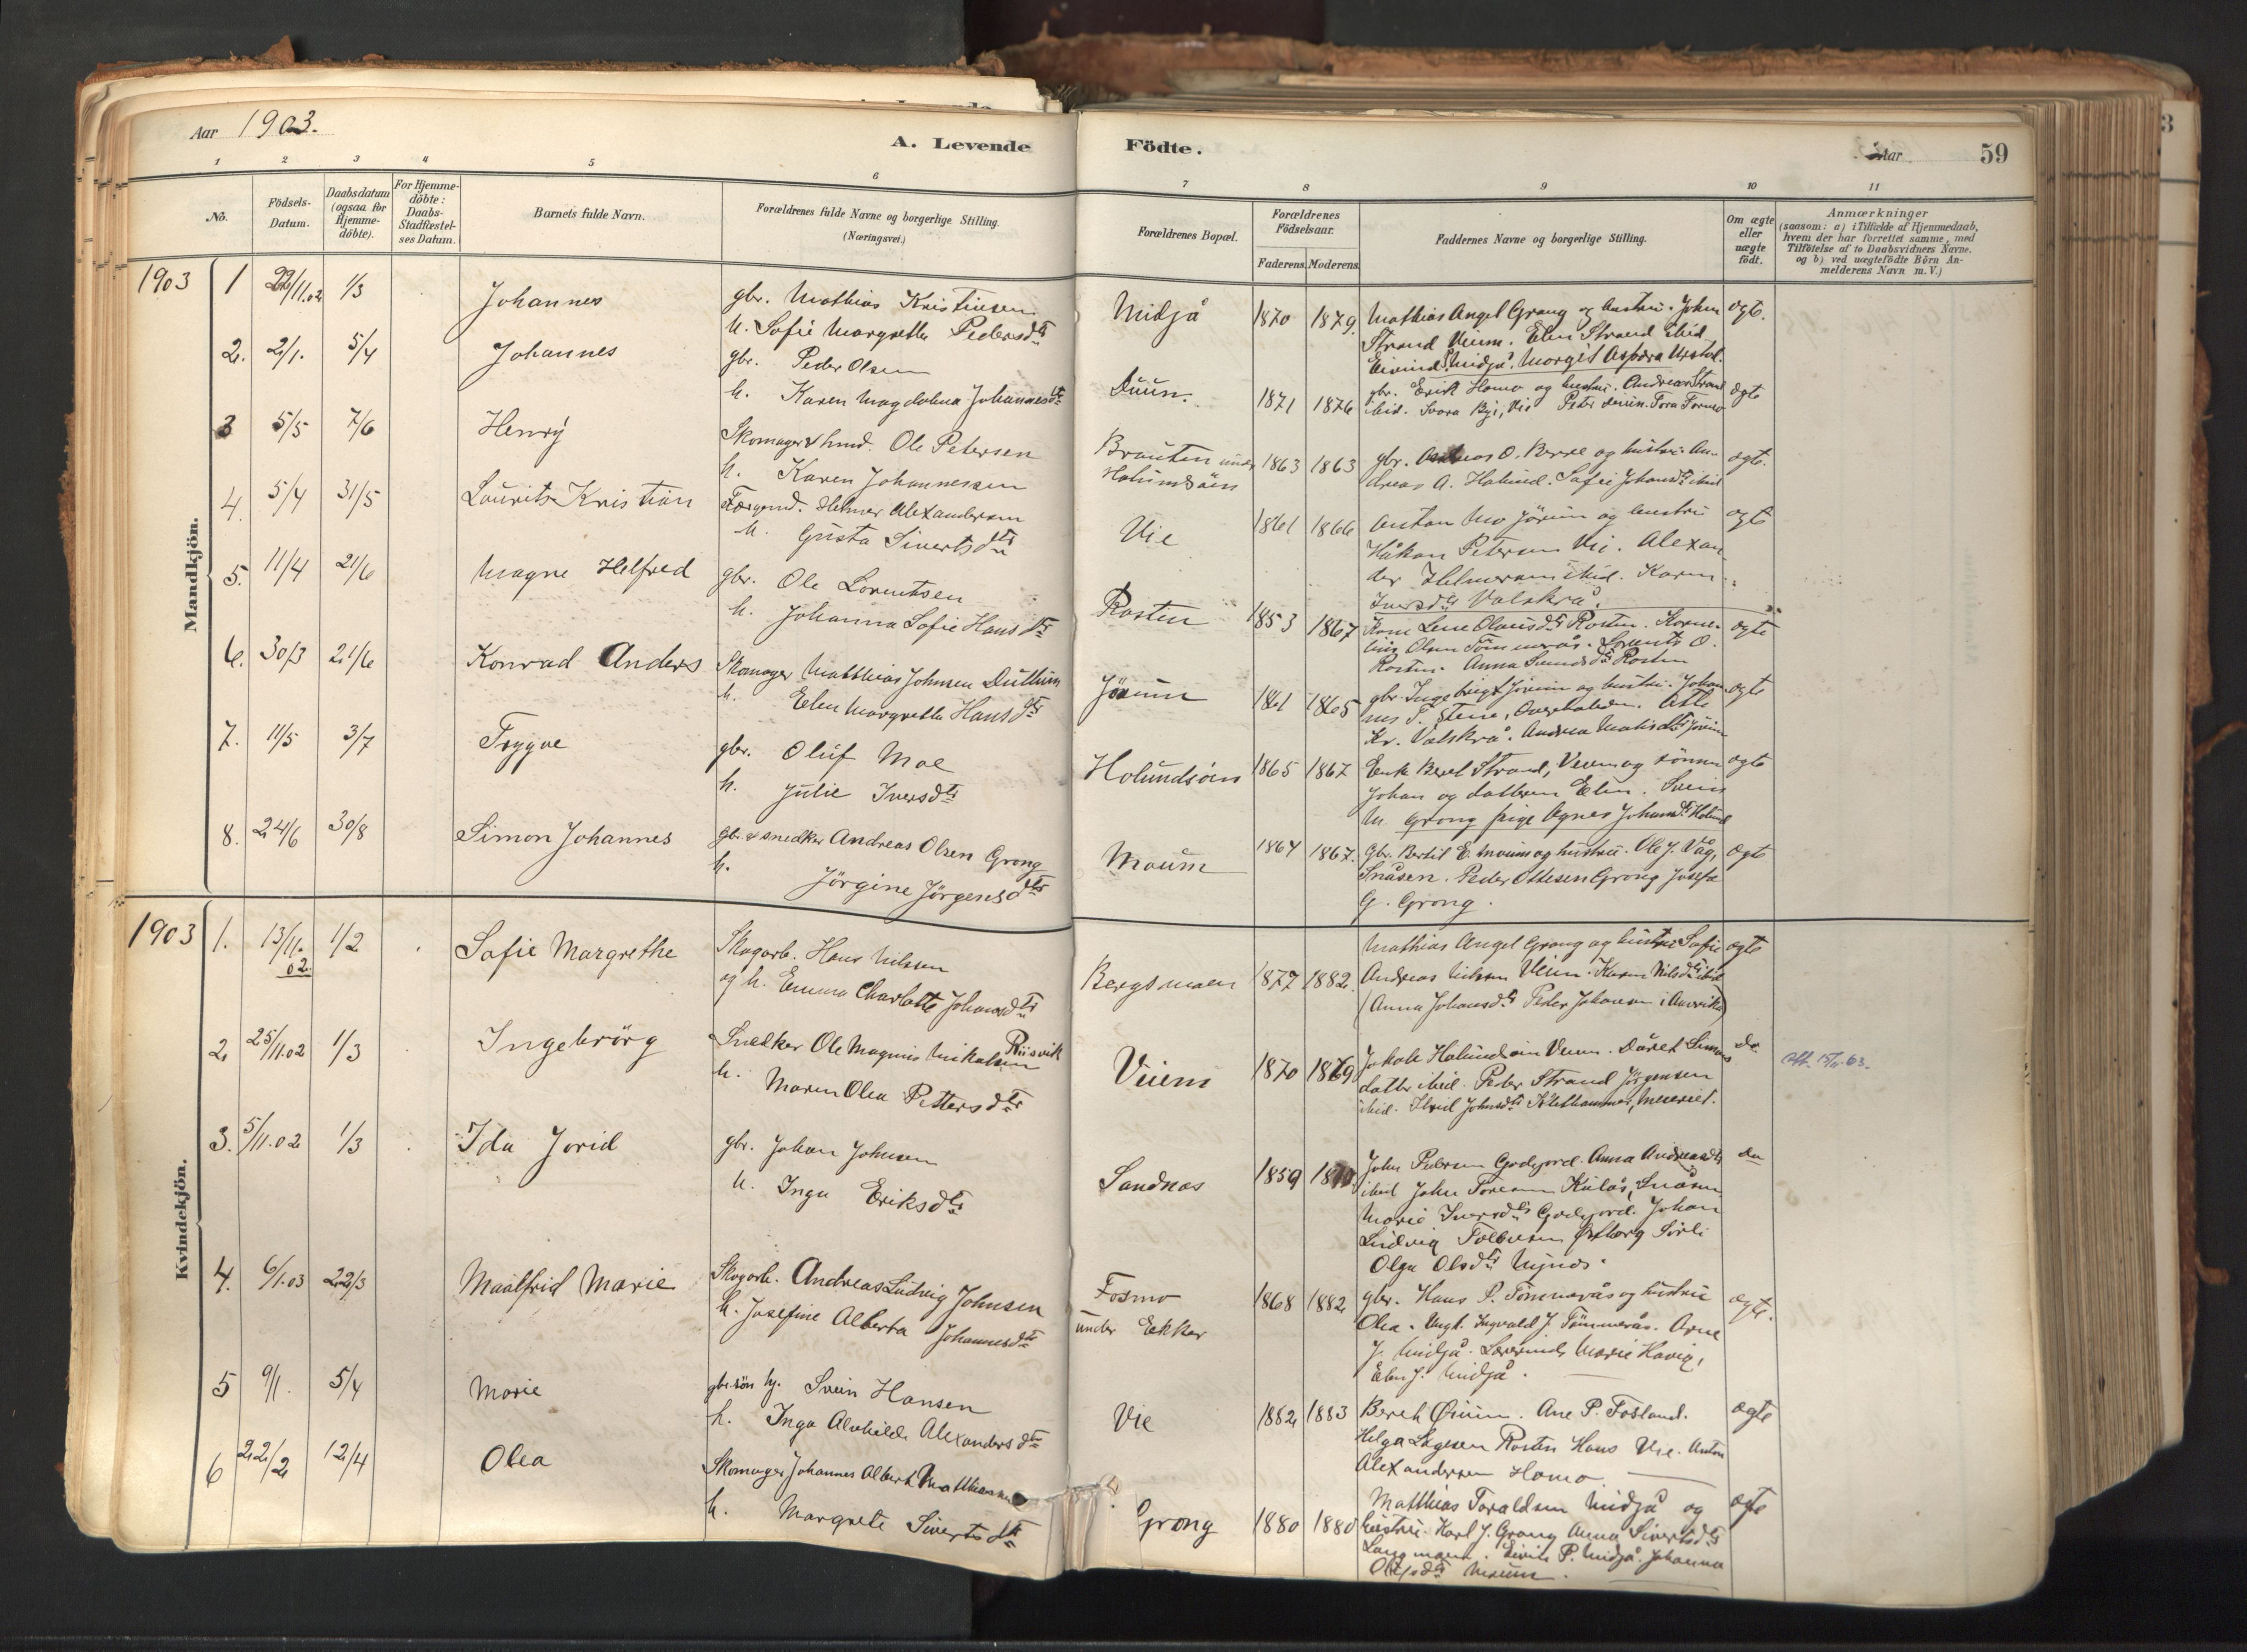 Aar 1903.
A. Levende
Födte.
Aar
59
1 2 3 4 5 6 7 8 9 10 11
No.
Födsels-
Datum.
Daabsdatum
(ogsaa for
Hjemme-
döbte).
For Hjemme-
döbte:
Daabs-
Stadfæstel-
ses Datum.
Barnets fulde Navn.
Forældrenes fulde Navne og borgerlige Stilling.
(Næringsvei.)
Forældrenes Bopæl.
Forældrenes
Födselsaar.
Faderens. Moderens.
Faddernes Navne og borgerlige Stilling.
Om ægte
eller
uægte
födt.
Anmærkninger
(saasom: a) i Tilfælde af Hjemmedaab,
hvem der har forrettet samme, med
Tilföielse af to Daabsvidners Navne.
og b) ved uægtefödte Börn An-
melderens Navn m. V.)
Mandkjön.
1903 1 /11.02 1/3 Johannes
gbr. Mathias Kristinsen
h. Sofie Margrethe Pedersdtr
Midjå 1870 1879.
Mathias Angel Grong og hustru. Johan
Strand Veium. Elen Strand ibid.
Eivind Midjå. Margit Aspaas
ægte.
2. 2/1. 5/4 Johannes
gbr. Peder Olsen
h. Karen Magdalena Johannesdtr
Duun. 1871 1876
gbr. Erik Homo og hustru. Andreas Strand
ibid. Vie Peter Duun. Tora Formo
ægte
3 5/5 7/6 Henry
Skomager & hmd. Ole Petersen
h. Karen Johannessen
Brauten under
Halundsöen
1863 1863
gbr. O. Berre og hustru. An-
dreas A. Halund. Sofie Johansdtr ibid
ægte.
4. 5/4 31/5 Laurits Kristian
Helmer Alexandersen
h. Gusta Sivertsdtr
Vie 1861 1866
Anton Mo Jörum og hustru
Håkon Petersen Vie. Alexan
der Helmersen ibid. Karen
Iversdtr Valskrå.
ægte
5. 11/4 21/6 Magne Helfred
gbr. Ole Lorentsen
h. Johanna Sofie Hansdtr
Rosten 1853 1867
Lene Olausdtr Rosten. Korne-
lius Olsen Tömmerås. Lorents O.
Rosten. Anna Rosten
ægte
6. 30/3 21/6 Konrad Anders
Skomager Matthias Johnsen Duthun
h. Elen Margrethe Hansdtr
Jörum 1861 1865
gbr. Ingebrigt Jörum og hustru. Johan
nes T. Stene, Overhalden. Atle
Kr. Valskrå. Andrea Jörum
ægte
7. 11/5 3/7 Trygve
gbr. Oluf Moe
h. Julie Iversdtr
Holundsöien 1865 1867
Enke Beret Strand, Veium og sönnen
Johan og datteren Elen. Svein
M. Grong pige Agnes Johansdtr Holund
ægte
8. 24/6 30/8 Simon Johannes
gbr & snedker Andreas Olsen Grong
h. Jörgine Jörgensdtr
Moum 1864 1867.
Gbr. Bertil E. Moum og hustru. Ole J. Våg,
Snåsen. Peder Ottesen Grong Josefa
G. Grong.
ægte
Kvindekjön.
1903 1. 13/11. 02. 1/2 Sofie Margrethe
Skogarb. Hans Nilssen
og h. Emma Charlotte Johansdtr
Bergsmoen 1877 1882.
Mathias Angel Grong og hustru Sofie
Andreas Nilssen Veium. Karen Nilsdtr ibid
(Anna Johansdtr Peder Johansen i Amerika)
ægte
2. 25/11.02 1/3 Ingebrörg
Snedker Ole Magnus Mikalsen Riisvik
h. Maren Olea Pettersdtr
Veium 1870 1869
Jakob Halundsöien Veium. Dåret Simons
datter ibid. Peder Strand Jörgensen
ibid. Johnsdtr Klethammer, Meieriet.
do.
15/11.63.
3. 5/11.02 1/3 Ida Jorid
gbr. Johan Johnsen
h. Inga Eriksdtr
Sandnes 1859
John Pedersen Godejord. Anna Andreasdtr
ibid John Snåsen
Marie Iversdtr Godejord. Johan
Ludvig Sörli
Olga Olsdtr
do
4. 6/1.03 22/3 Maalfrid Marie
Skogarb. Andreas Ludvig Johnsen
h. Josefine Alberta Johannesdtr
Fosmo
under Ekker
1868 1882
gbr. Hans P. Tömmerås og hustru
Olea. Ungk. Ingvald J. Tömmerås. Arne
J. Midjå. Lærerinde Marie Havig,
Elen J. Midjå.
ægte.
5 9/1. 5/4 Marie
gbrsön hj. Svein Hansen
h. Inga Alvhilde Alexandersdtr
Vie 1882 1883
Bereth Öium. Ane P. Fosland.
Helga Rosten Hans Vie. Anton
Alexandersen Homo.
ægte
6 22/2 12/4 Olea
Skomager Johannes Albert Matthiassen
h. Margrete Sivertsdtr
Grong 1880 1880
Matthias Toraldsen Midjå og
hustru. Karl J. Grong Anna Sivertsdtr
Langmoen. P. Midjå. Johanna
Veium.
ægte